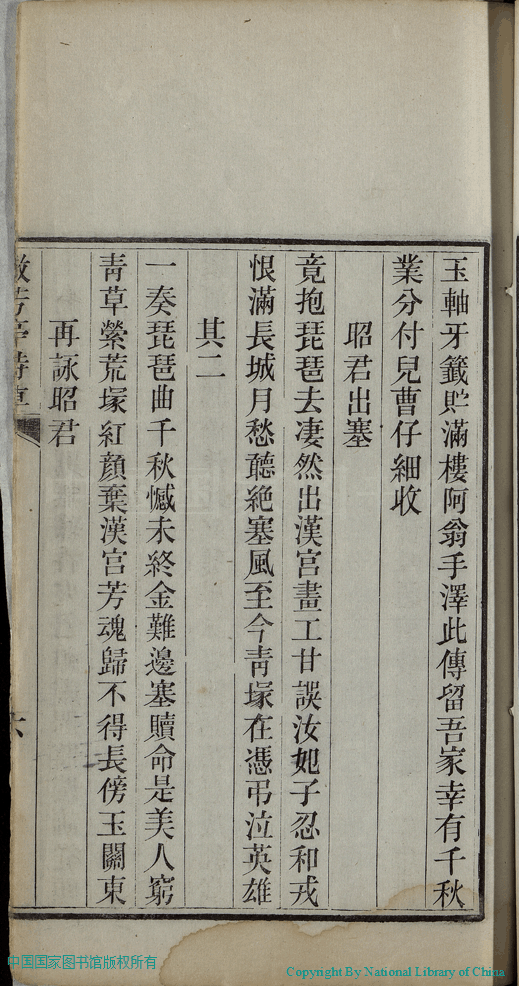 玉軸牙籤貯滿樓阿翁手澤此傳留吾家幸有千秋
業分付兒曹仔細收
昭君出塞
竟抱琵琶去凄然出漢宫畫工甘誤汝妃子忍和戎
恨滿長城月愁聽絶塞風至今青塚在憑弔泣英雄
其二
一奏琵琶曲千秋憾未終金難邊塞贖命是美人窮
青草縈荒塚紅顔棄漢宫芳魂歸不得長傍玉關東
再詠昭君
芳亭詩
六
中国国家图书馆版权所有
Copyright By National Library of China